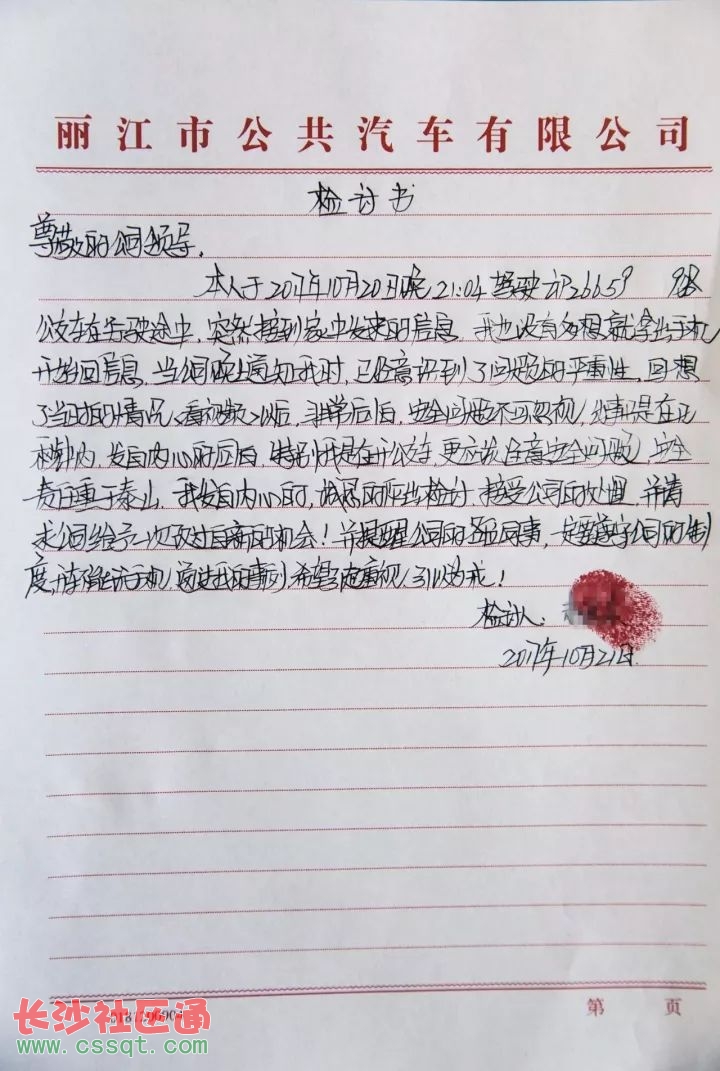 丽江市公共汽车有限公司
检讨书
尊敬的公司领导,
本人于2017年10月20日晚21:04驾驶 P26659 9路
公交车在驾驶途中,突然接到家中发来的信息,我也没有多想就拿出手机
开始回信息,当公司晚上通知我时,已经意识到了问题的严重性,回想
了当时的情况<看视频>以后,非常后怕,安全问题不可忽视,
发自内心的后怕,特别我是在开公交车,更应该注意安全问题,安全
责任重于泰山,我发自内心的,检讨,接受公司的处理,并请
求公司给予一次改过自新的机会!并提醒公司的各位同事,一定要遵守公司的制
度,手机,希望 重视,引以为戒!
检讨人:
2017年10月21日
第 页
长沙社区通
www.cssqt.com